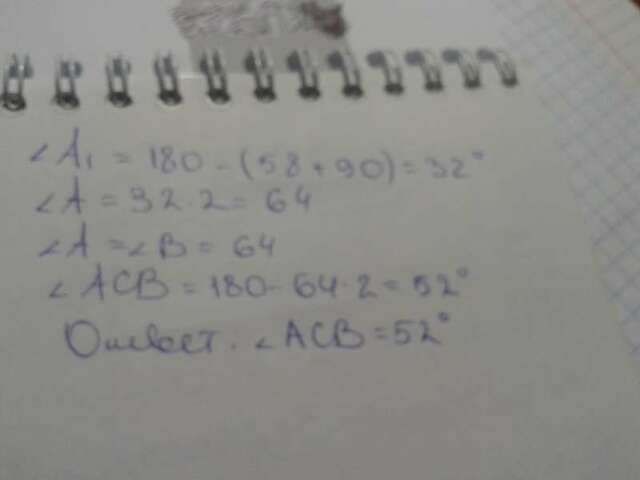 ∠A₁ = 180 - (58 + 90) = 32°
∠A = 32 · 2 = 64
∠A = ∠B = 64
∠ACB = 180 - 64 · 2 = 52°
Ответ. ∠ACB = 52°